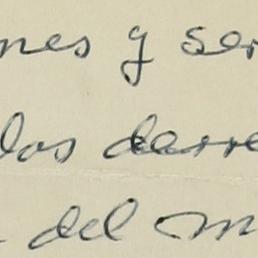 nes y ser
los desre
del m